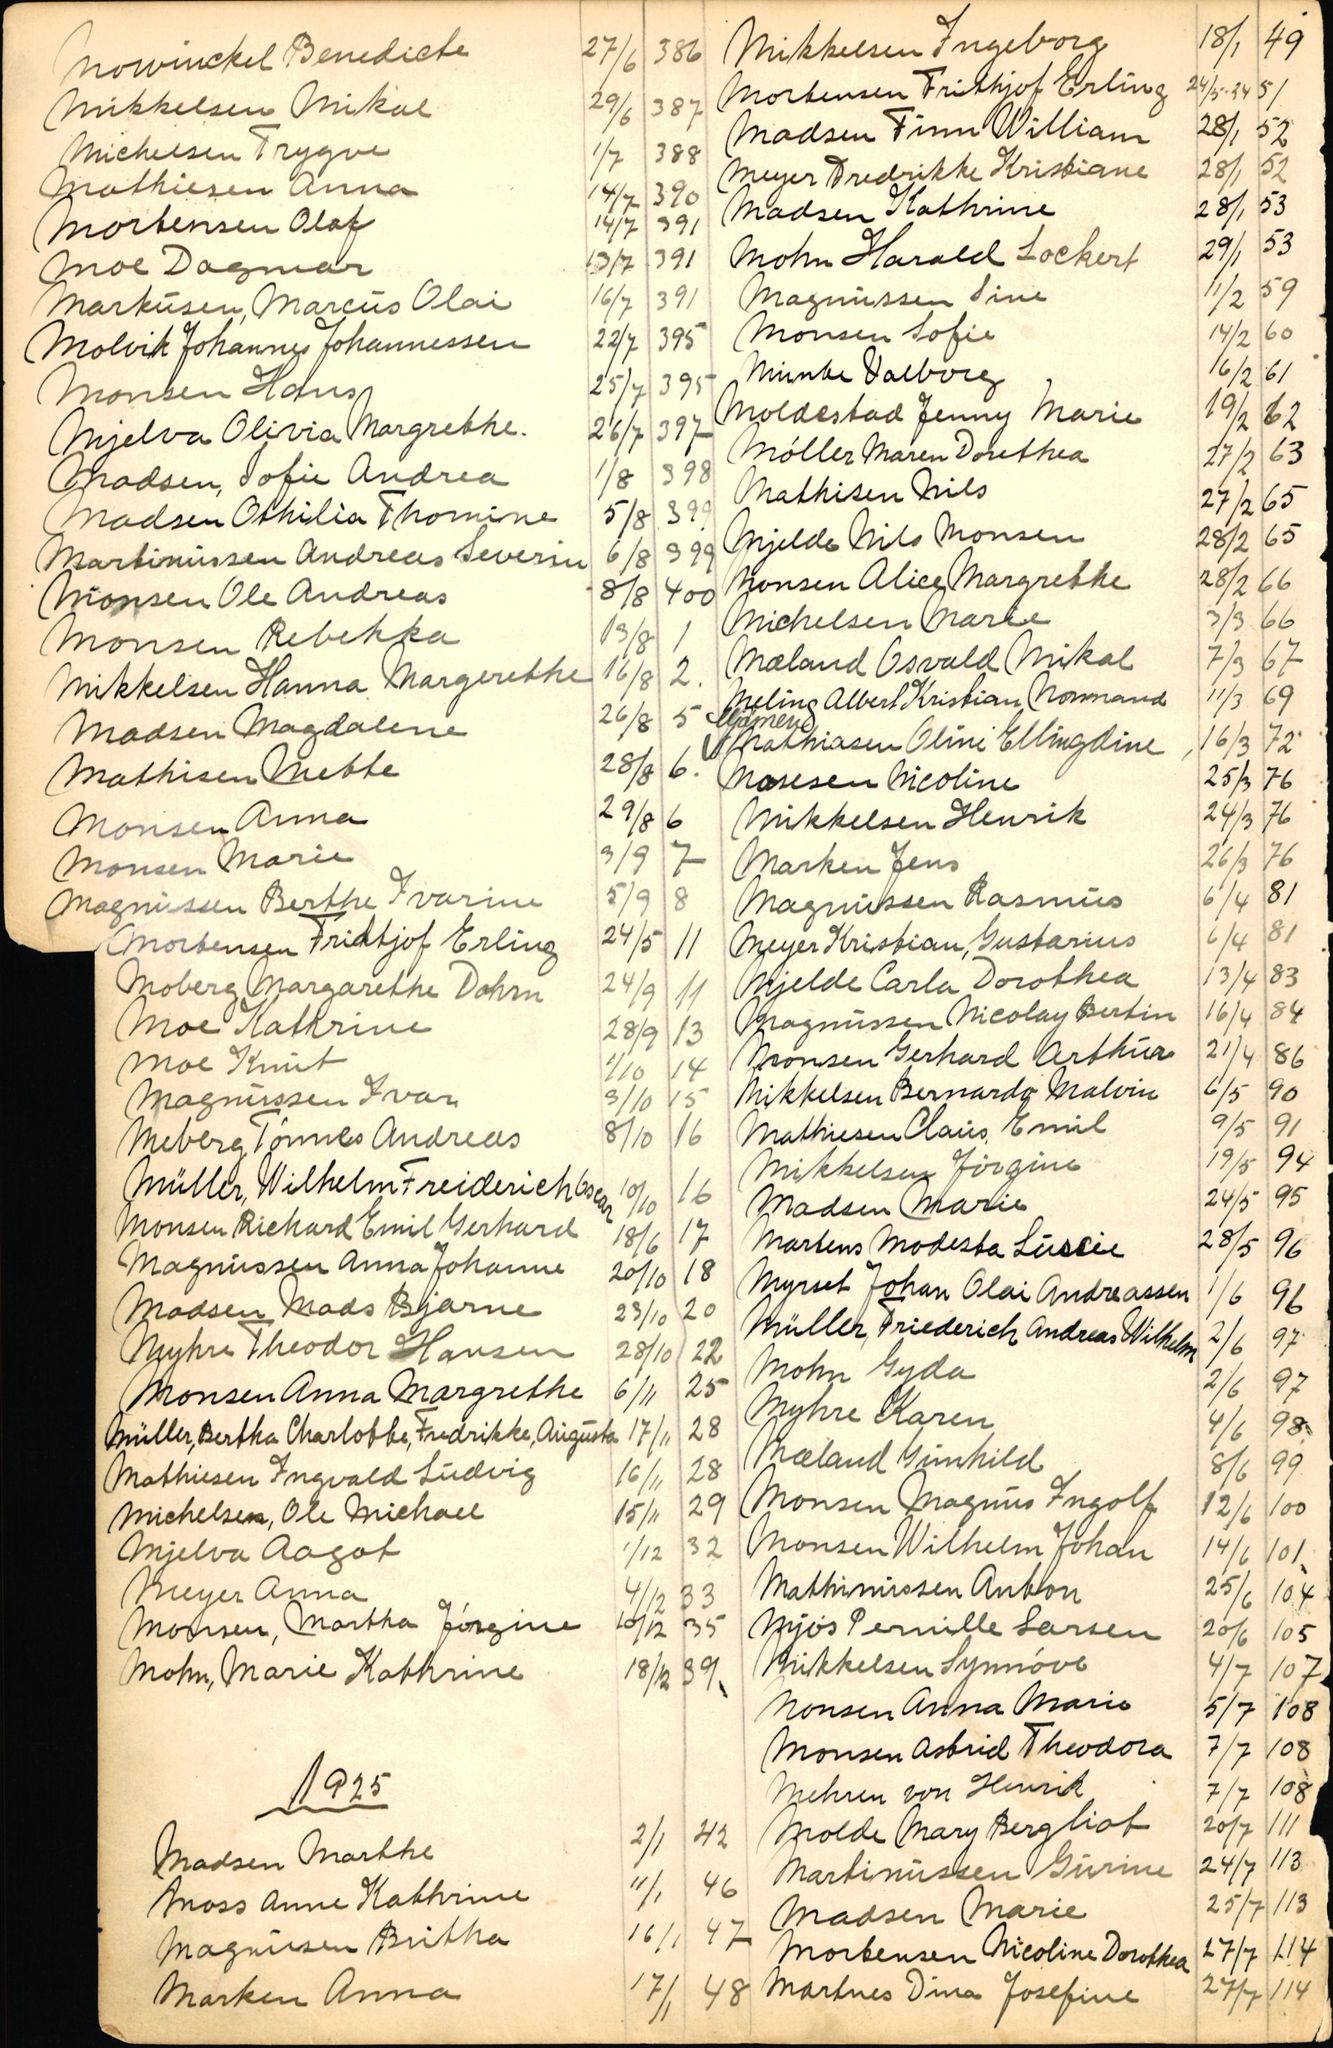 Mowinckel Benedicte 27/6 386
Mikkelsen Mikal 29/6 387
Michelsen Trygve 1/7 388
Mathiesen Anna 14/7 390
Mortensen Olaf 14/7 391
Moe Dagmar 13/7 391
Markusen, Marcus Olai 16/7 391
Molvik Johannes Johannessen 22/7 395
Monsen Hans 25/7 395
Mjelva Olivia Margrethe. 26/7 397
Madsen, Sofie Andrea 1/8 398
Madsen Othilia Thomine 5/8 399
Martinussen Andreas Severin 6/8 399
Monsen Ole Andreas 8/8 400
Monsen Rebekka 13/8 1
Mikkelsen Hanna Margerethe 16/8 2.
Madsen Magdalene 26/8 5
Mathisen Mette 28/8 6.
Monsen Anna 29/8 6
Monsen Marie 3/9 7
Magnussen Berthe Ivarine 5/9 8
Mortensen Fridtjof Erling 24/5 11
Moberg Margarethe Dahm 24/9 11
Moe Kathrine 28/9 13
Moe Knut 1/10 14
Magnussen Ivar 3/10 15
Meberg Tønnes Andreas 8/10 16
Müller, Wilhelm Freiderich Oscar 10/10 16
Monsen Richard Emil Gerhard 18/6 17
Magnussen Anna Johanne 20/10 18
Madsen Mads Bjarne 23/10 20
Myhre Theodor Hansen 28/10 22
Monsen Anna Margrethe 6/11 25
Müller, Bertha Charlotte, Fredrikke, Augusta 17/11 28
Mathiesen Ingvald Ludvig 16/11 28
Michelsen, Ole Michael 15/11 29
Mjelva Aagot 1/12 32
Meyer Anna 4/12 33
Monsen, Martha Jørgine 10/12 35
Mohn, Marie Kathrine 18/12 39
1925
Madsen Marthe 2/1 42
Moss Anne Kathrine 11/1 46
Magnusen Britha 16/1 47
Marken Anna 17/1 48
Mikkelsen Ingeborg 18/1 49
Mortensen Frithjof Erling 24/5-24 51
Madsen Finn William 28/1 52
Meyer Fredrikke Kristiane 28/1 52
Madsen Kathrine 28/1 53
Mohn Harald Lockert 29/1 53
Magnussen Sine 11/2 59
Monsen Sofie 14/2 60
Munte Valborg 16/2 61
Moldestad Jenny Marie 19/2 62
Möller Maren Dorethea 27/2 63
Mathisen Nils 27/2 65
Mjelde Nils Monsen 28/2 65
Monsen Alice Margrethe 28/2 66
Michelsen Marie 3/3 66
Mæland Osvald Mikal 7/3 67
Meling Albert Kristian Normand 11/3 69
Mathiasen Oline Ellingdine 16/3 72
Mosesen Nicoline 25/3 76
Mikkelsen Henrik 24/3 76
Marken Jens 26/3 76
Magnussen Rasmus 6/4 81
Meyer Kristian, Gustavius 6/4 81
Mjelde Carla Dorothea 13/4 83
Magnussen Nicolay Bertin 16/4 84
Monsen Gerhard Arthur 21/4 86
Mikkelsen Bernardo Malvin 6/5 90
Mathiesen Claus Emil 9/5 91
Mikkelsen Jörgine 19/5 94
Madsen Marie 24/5 95
Martens Modesta Luscie 28/5 96
Myrset Johan Olai Andreassen 1/6 96
Müller, Friederich Andreas Wilhelm 2/6 97
Mohn Gyda 2/6 97
Myhre Karen 4/6 98
Mæland Gunhild 8/6 99
Monsen Magnus Ingolf 12/6 100
Monsen Wilhelm Johan 14/6 101
Mathinussen Anton 25/6 104
Mjös Pernille Larsen 20/6 105
Mikkelsen Synnöve 4/7 107
Monsen Anna Marie 5/7 108
Monsen Astrid Theodora 7/7 108
Mehren von Henrik 7/7 108
Molde Mary Bergliot 20/7 111
Martinussen Gurine 24/7 113
Madsen Marie 25/7 113
Mortensen Nicoline Dorothea 27/7 114
Martnes Dina Josefine 27/7 114